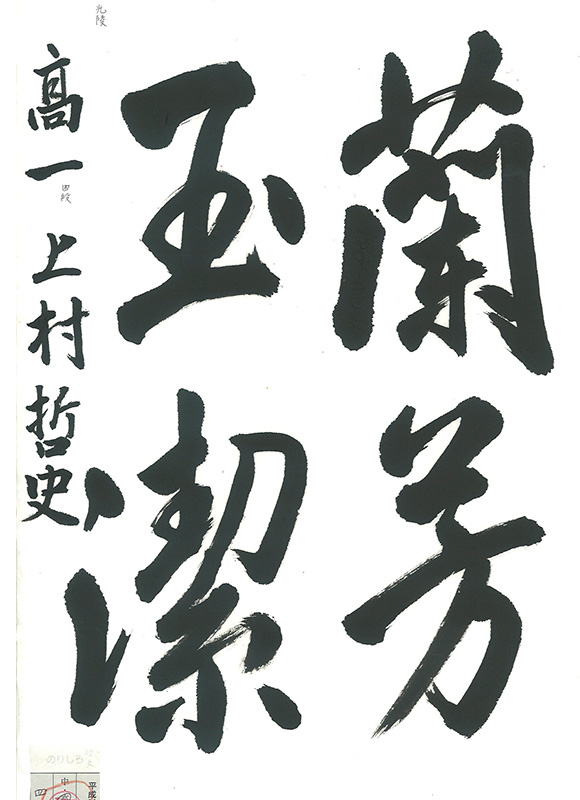 蘭芳
玉潔
光陵
高一 四段 上村哲史
のりしろ
平成
中
四